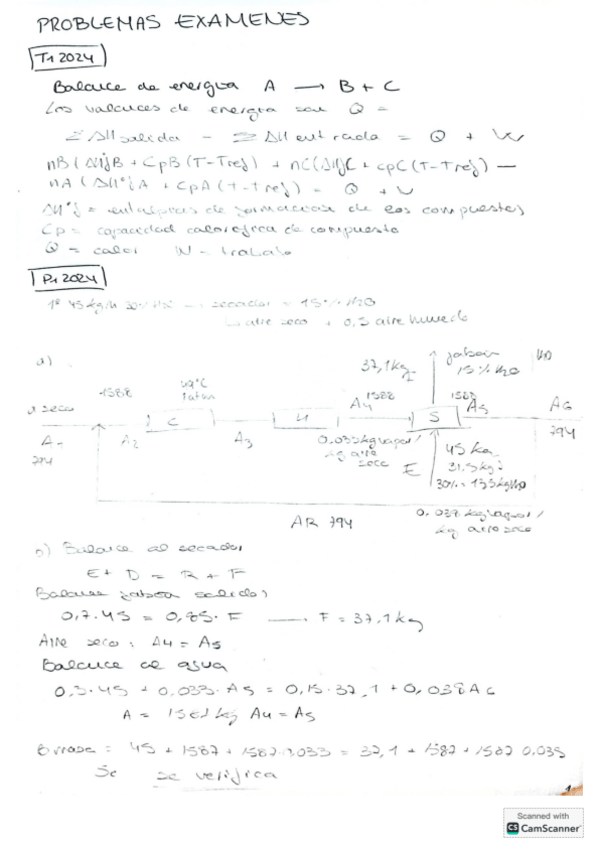 PROBLEMAS EXAMENES
T1 2024
Balance de energia A → B + C
Los valances de energia son Q =
Σ ΔH salida - Σ ΔH entrada = Q + W
nB (ΔHfB + CpB (T-Tref) + nC(ΔHfC + cpC (T-Tref) —
nA (ΔH°fA + CpA (T-Tref) = Q + W
ΔH°f = entalpias de formacion de los compuestos
Cp = capacidad calorifica de compuesto
Q = calor W = trabajo
P1 2024
1º 45 kg/h 30% H2O → secador = 15% H2O
aire seco + 0,5 aire humedo
a)
37,1 kg
jabon
15% H2O
1588
49ºC
1588
1588
A4
A5
A6
a seco
C
H
S
794
A2
A3
0.033 kg vapor /
kg aire
seco
E
45 kg
31.5 kg
30%
794
AR 794
0.038 kg vapor /
kg aire seco
Balance al secador
E + D = R + F
Balance jabon salida
0,7·45 = 0,85·F → F = 37,1 kg
Aire seco: A4 = A5
Balance de agua
0,3·45 + 0,033·A5 = 0,15·37,1 + 0,038A6
A = kg A4 = A5
45 + 1587 + 1587·0.033 = 37,1 + 1587 + 1587·0.038
Se se verifica
1
Scanned with
CS CamScanner